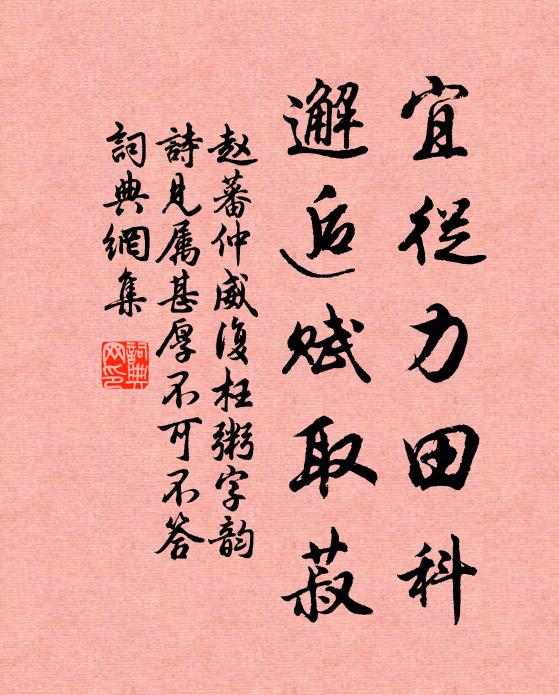 宜從力田科
邂逅赋取菽
赵蕃仲威復枉粥字韵
詩見属甚厚不可不答
詞典網集
詞典网印